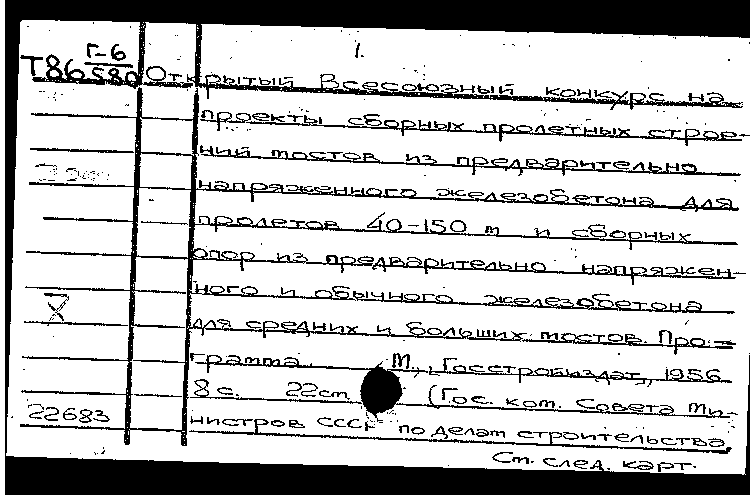 1.
Т86 Г-6/580 Открытый Всесоюзный конкурс на
проекты сборных пролетных строе-
ний мостов из предварительно
напряженного железобетона для
пролетов 40-150 m и сборных
опор из предварительно напряжен-
ного и обычного железобетона
для средних и больших мостов. Про-
грамма. М., Госстройиздат, 1956.
8 с. 22 cm (Гос. ком. Совета Ми-
22683 нистров СССР по делам строительства
См. след. карт.